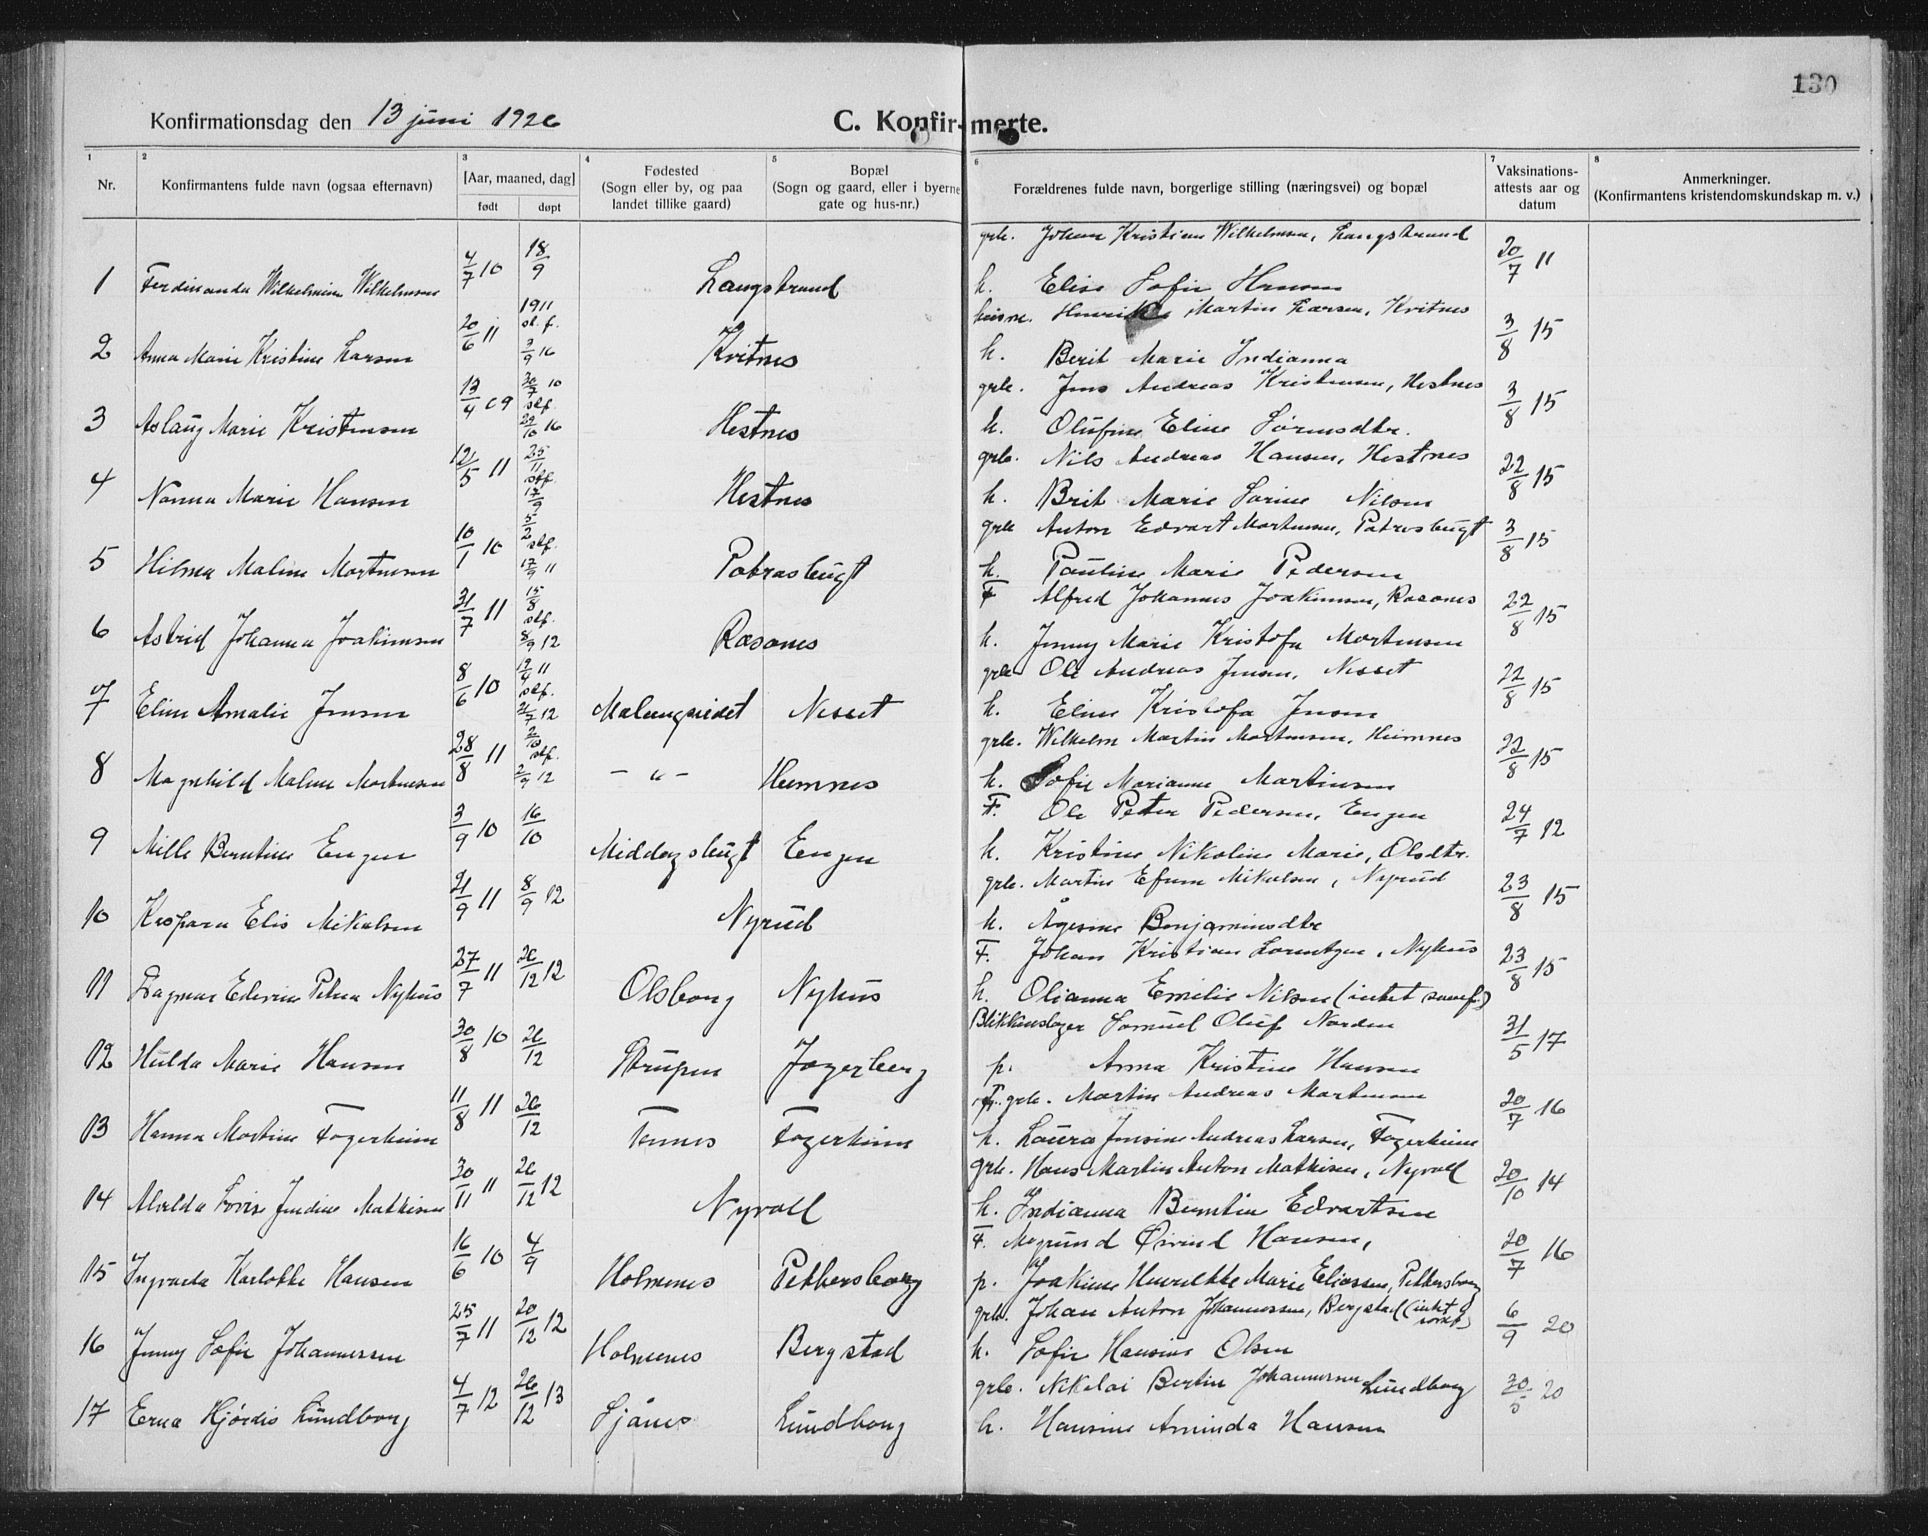 130
Konfirmationsdag den 13 juni 1926
C. Konfirmerte.
1 2 3 4 5 6 7 8
Nr. Konfirmantens fulde navn (ogsaa efternavn) [Aar, maaned, dag] født døpt Fødested (Sogn eller by, og paa landet tillike gaard) Bopæl (Sogn og gaard, eller i byerne gate og hus-nr.) Forældrenes fulde navn, borgerlige stilling (næringsvei) og bopæl Vaksinations-attests aar og datum Anmerkninger. (Konfirmantens kristendomskundskap m. v.)
grb. Johan Kristian Wilhelmsen, Langstrand
1 Ferdinanda Wilhelmine Wilhelmsen 4/7 10 18/9 Langstrand h. Elise Sofie Hansen 20/7 11
1911 Henrik Martin Larsen, Kvitnes
2 Anna Marie Kristine Larsen 20/6 11 sl. f. 3/9 16 Kvitnes h. Berit Marie Indianna 3/8 15
grb. Jens Andreas Kristensen, Hestnes
3 Aslaug Marie Kristensen 13/4 09 30/7 10 slf. 29/10 16 Hestnes h. Olufine Eline Sørensdtr. 3/8 15
grb. Nils Andreas Hansen, Hestnes
4 Nanna Marie Hansen 12/5 11 25/11 slf. 17/9 Hestnes h. Brit Marie Sarine Nilsen 22/8 15
grb Anton Edvart Mortensen, Patrasbugt
5 Hilma Maline Mortensen 10/1 10 5/2 slf. 17/9 11 Patrasbugt h. Pauline Marie Pedersen 3/8 15
F Alfred Johannes Joakimsen, Rasanes
6 Astrid Johanna Joakimsen 31/7 11 15/8 slf. 8/9 12 Rasanes h. Jenny Marie Kristofa Mortensen 22/8 15
grb Ole Andreas Jensen, Nesset
7 Eline Amalie Jensen 8/6 10 19/4 11 slf. 21/7 12 Malangseidet Nesset h. Eline Kristofa Jensen 22/8 15
grb. Wilhelm Martin Mortensen, Heimnes
8 Magnhild Maline Mortensen 28/8 11 2/10 slf. 2/9 12 — " — Heimnes h. Sofie Marianne Martinsen 22/8 15
F. Ole Peter Pedersen, Engen
9 Mille Berntine Engen 3/9 10 16/10 Middagsbugt Engen h. Kristine Nikoline Marie, Olsdtr. 24/7 12
grb. Martin Efraim Mikalsen, Nyrud
10 Kaspara Elis Mikalsen 21/9 11 8/9 12 Nyrud h. Ågesine Benjaminsdtr 23/8 15
F. Johan Kristian Lorentzen, Nyhus
11 Dagmar Edevine Petra Nyhus 27/7 11 26/12 12 Olsborg Nyhus h. Olianna Emelie Nilsen 23/8 15
Blikkenslager Samuel Oluf Norden
12 Hulda Marie Hansen 30/8 10 26/12 Strupen Jagerberg p. Anna Kristine Hansen 31/5 17
grb. Martin Andreas Mortensen
13 Hanna Martine Fagerheim 11/8 11 26/12 Tennes Fagerheim h. Laura Jensine Andreas Larsen, Fagerheim 20/7 16
grb. Hans Martin Anton Mathisen, Nyvoll
14 Alvilda Jendine Mathisen 30/11 11 26/12 12 Nyvoll h. Indianna Berntine Edvartsen 20/10 14
F. Magnund Øivind Hansen,
15 Ingvarda Karlotte Hansen 16/6 10 4/9 Holmenes Pettersborg p. Joakime Henrikke Marie Eliassen, Pettersborg 20/7 16
grb. Johan Anton Johannessen, Bergstad
16 Jenny Sofie Johannessen 25/7 11 20/12 12 Holmenes Bergstad h. Sofie Hansine Olsen 6/9 20
grb. Nikolai Bertin Johannessen Lundborg
17 Erna Hjørdis Lundborg 4/7 12 26/12 13 Sjånes Lundborg h. Hansine Aminda Hansen 30/5 20